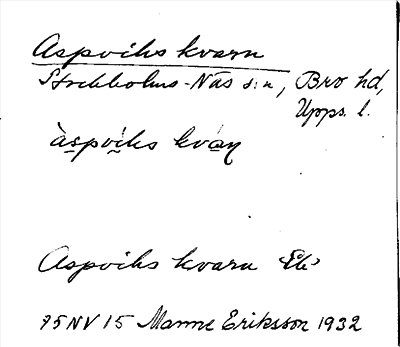 Aspviks kvarn
Stockholms-Näs s:n, Bro hd,
Upps. l.
àspviks kván
Aspviks kvarn
75 NV 15 Manne Eriksson 1932